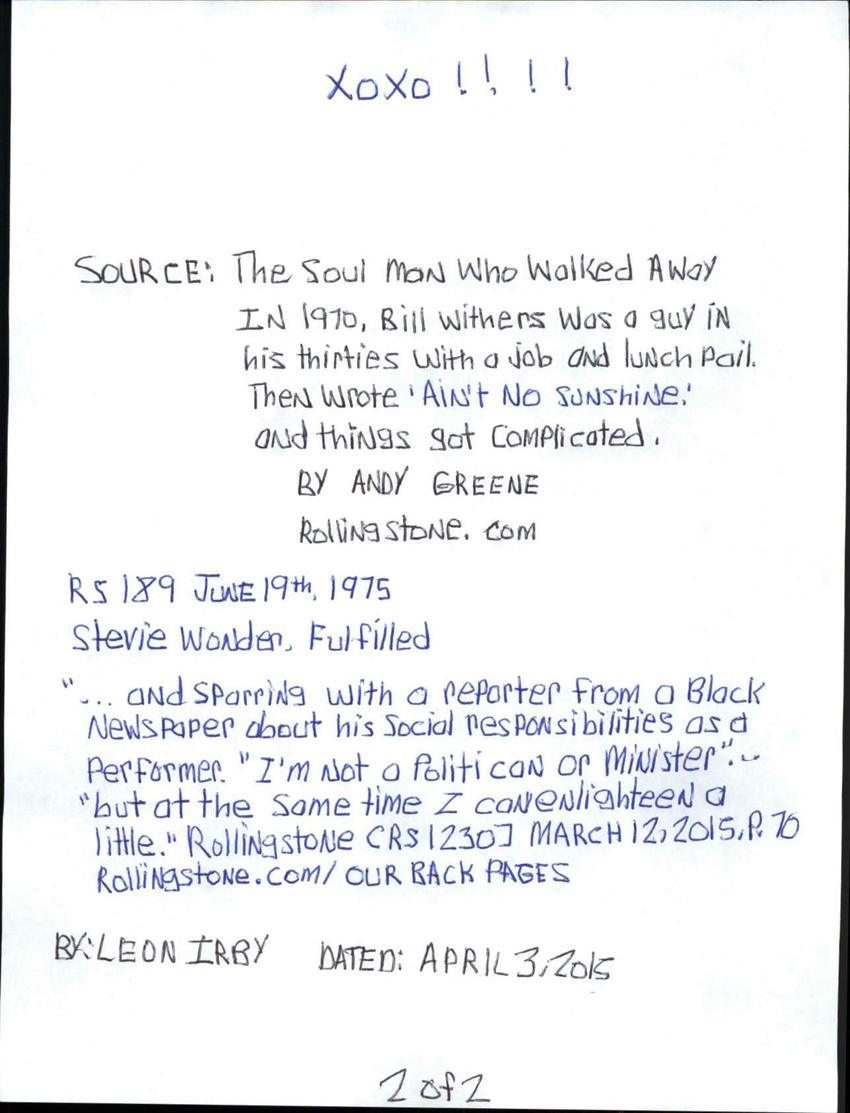 XOXO !!!!
SOURCE: The Soul Man Who Walked Away
IN 1970, Bill Withers was a guy in
his thirties with a job and lunch pail.
Then Wrote 'Ain't No Sunshine.'
and things got complicated.
BY ANDY GREENE
Rollingstone.com
RS 189 JUNE 19th, 1975
Stevie Wonder, Fulfilled
"... and sparring with a reporter from a Black
Newspaper about his social responsibilities as a
performer. "I'm not a politican or minister"...
"but at the same time I can enlighteen a
little." Rollingstone [RS 1230] MARCH 12, 2015, P. 70
Rollingstone.com/ OUR BACK PAGES
BY: LEON IRBY DATED: APRIL 3, 2015
2 of 2